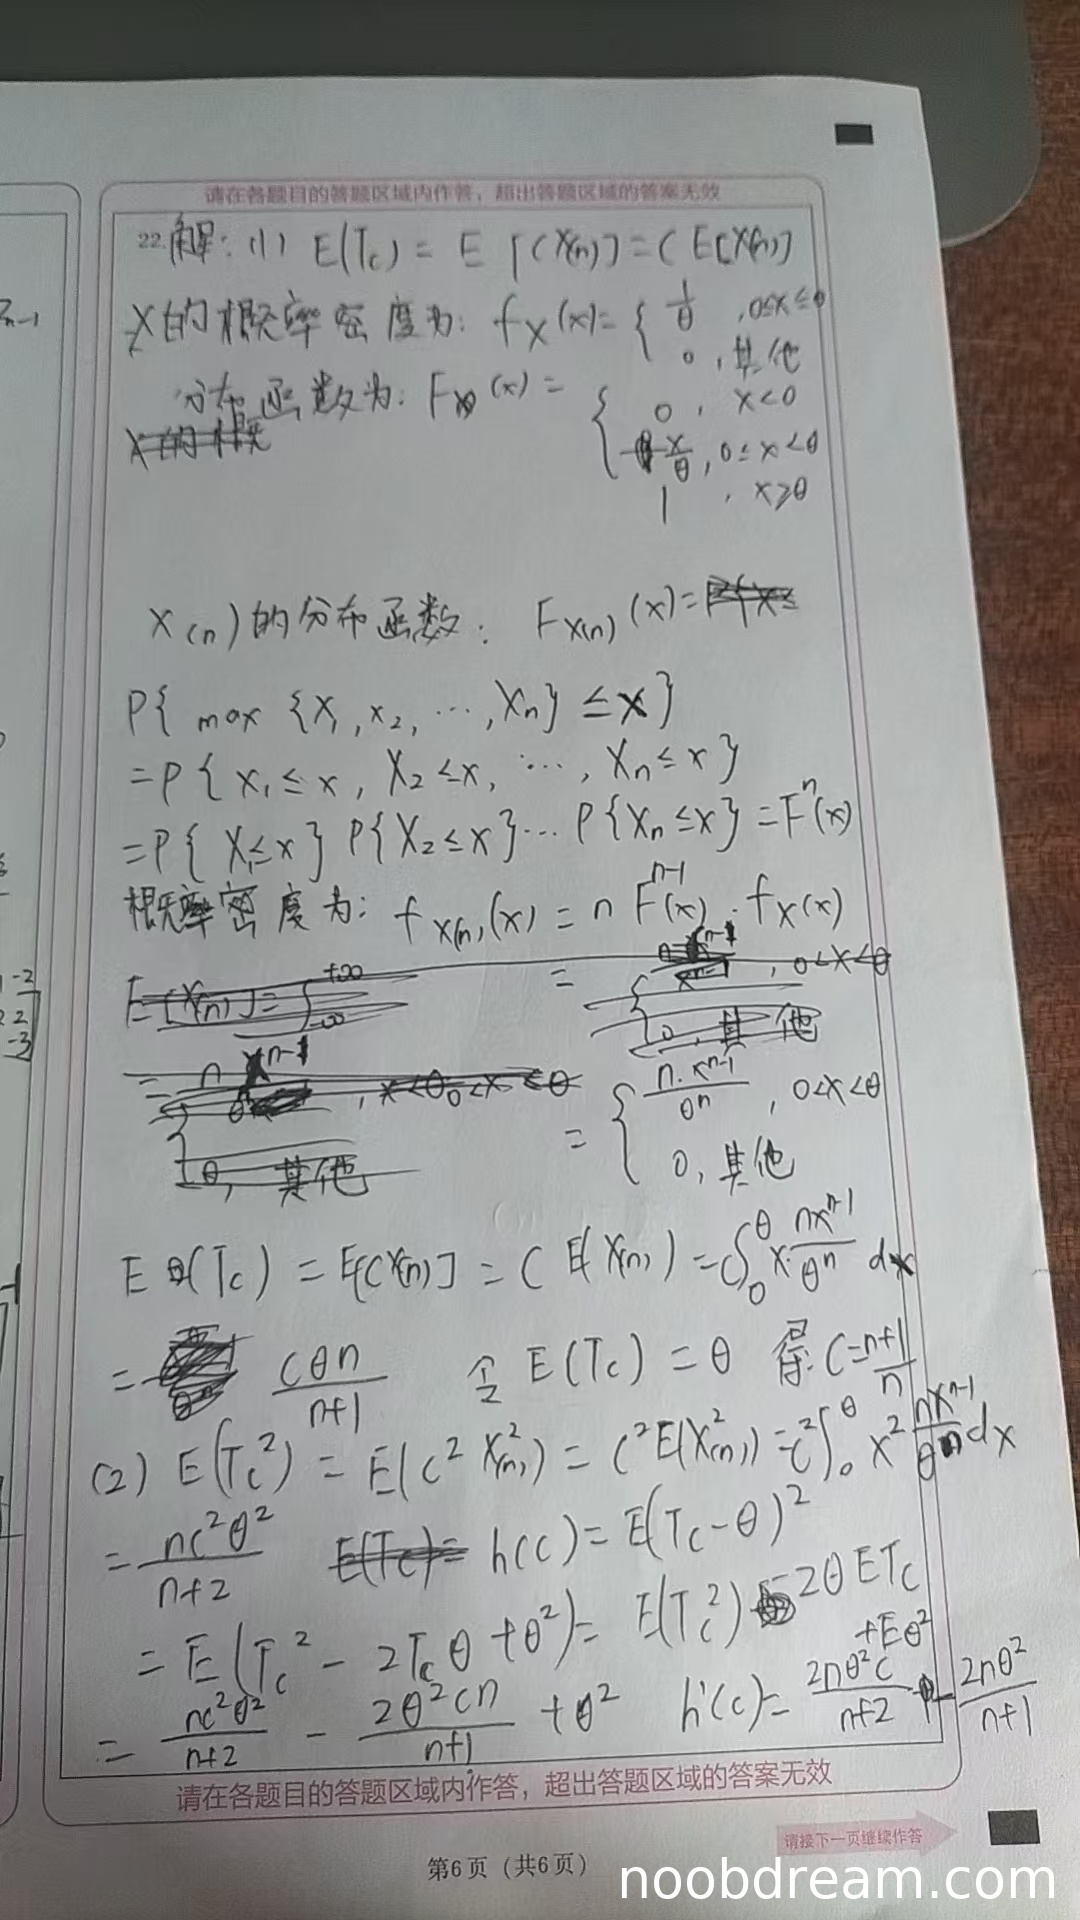 请在各题目的答题区域内作答，超出答题区域的答案无效
22.解：(1) E(Tc) = E[CX(n)] = C E[X(n)]
X的概率密度为：fX(x) = { 1/θ , 0≤x≤θ
0 , 其他
分布函数为：FX(x) = { 0 , x<0
x/θ , 0≤x<θ
1 , x≥θ
X的概
X(n)的分布函数：FX(n)(x) =
P{max{X1, X2, …, Xn} ≤ x}
= P{X1≤x, X2≤x, …, Xn≤x}
= P{X1≤x} P{X2≤x} … P{Xn≤x} = F^n(x)
概率密度为：fX(n)(x) = n F^{n-1}(x) · fX(x)
E[X(n)] = ∫_{-∞}^{+∞}
0, 其他
= { n·x^{n-1}/θ^n , 0<x<θ
0, 其他
E(Tc) = E[CX(n)] = C E(X(n)) = C∫_0^θ x· nx^{n-1}/θ^n dx
= Cθn/(n+1) 令 E(Tc) = θ 得：C = (n+1)/n
(2) E(Tc²) = E(C² X(n)²) = C² E(X(n)²) = C²∫_0^θ x² nx^{n-1}/θ^n dx
= nC²θ²/(n+2) E(Tc)= h(C) = E(Tc-θ)²
= E(Tc² - 2Tcθ + θ²) = E(Tc²) - 2θETc + Eθ²
= nC²θ²/(n+2) - 2θ²Cn/(n+1) + θ² h'(C) = 2nθ²C/(n+2) - 2nθ²/(n+1)
请在各题目的答题区域内作答，超出答题区域的答案无效
请接下一页继续作答
第6页（共6页）
noobdream.com